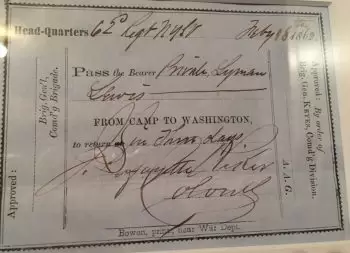 Head-Quarters 62d Regt NYSV Feby 1862
Pass the Bearer Private Lyman
Lewis
FROM CAMP TO WASHINGTON,
to return in Days.
Colonel
Bowen, print, near War Dept.
Approved:
Brig. Gen'l,
Com'd'g Brigade.
Approved: By order of
Brig. Gen. KEYES, Com'd'g Division.
A. A. G.